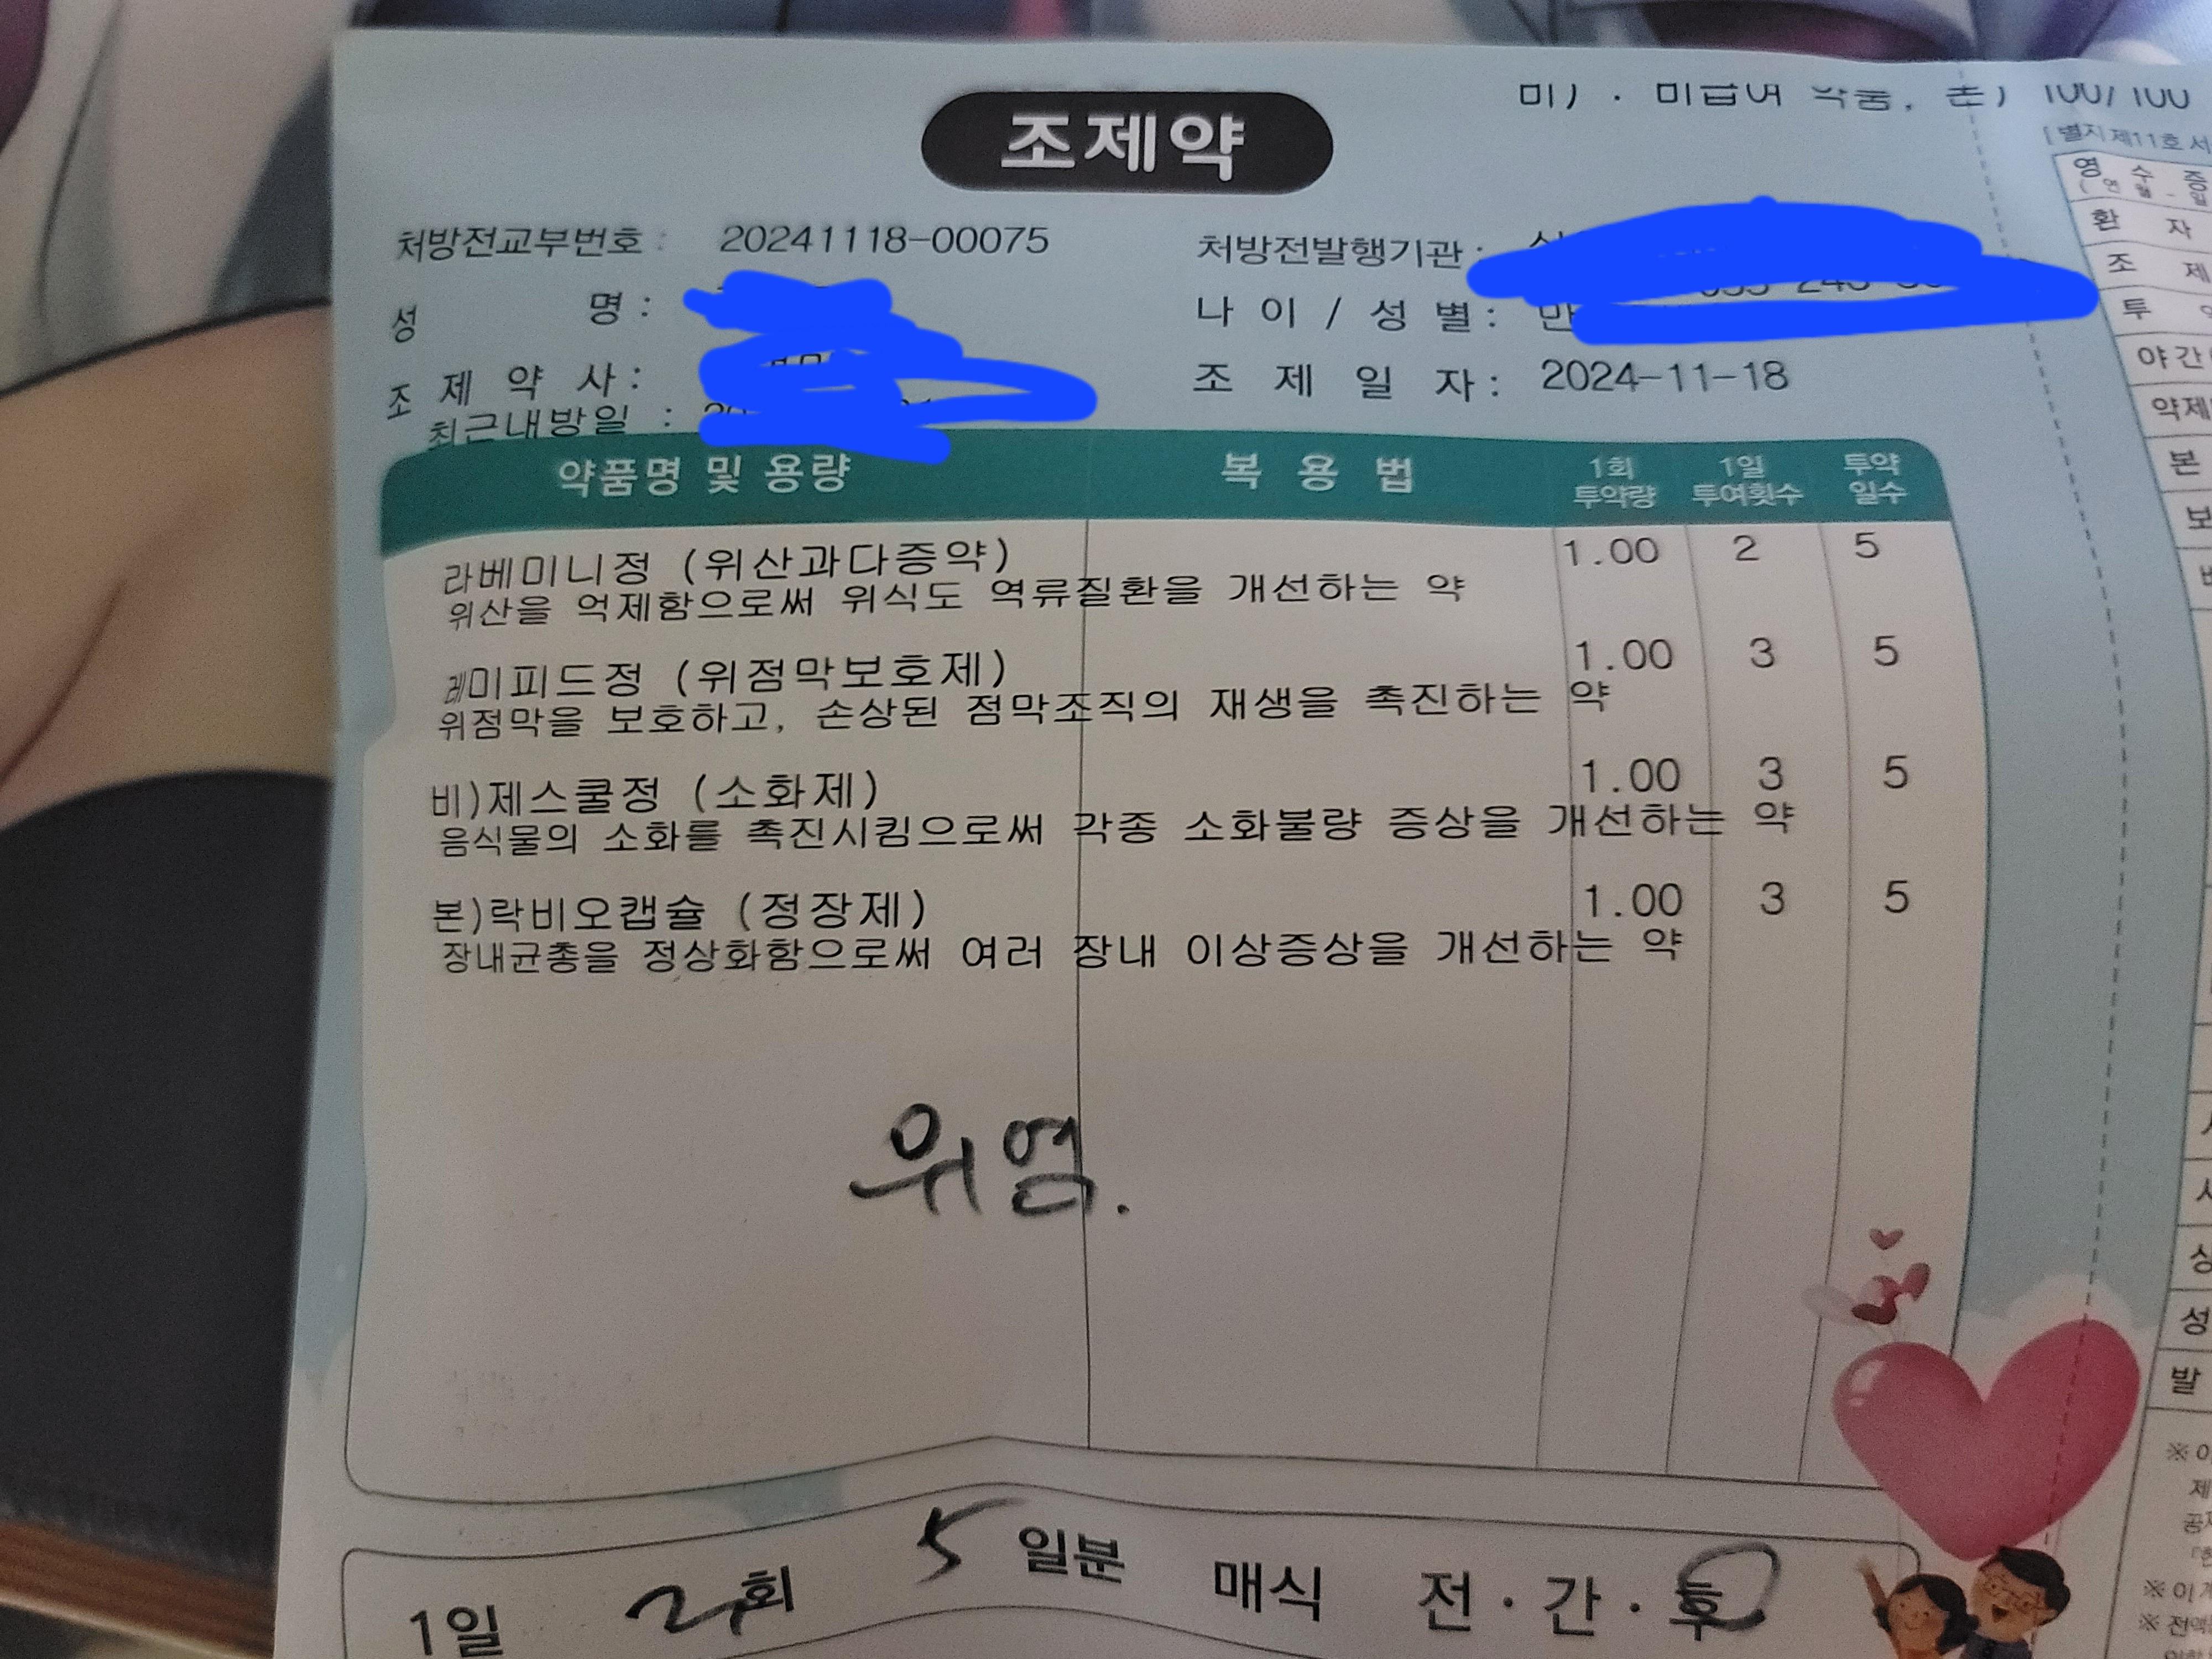 조제약
100/100
[별지제11호서
처방전교부번호 : 20241118-00075
처방전발행기관 :
성 명 :
나 이 / 성 별 : 만
조 제 약 사 :
조 제 일 자 : 2024-11-18
최근내방일 :
약품명 및 용량 복 용 법 1회 투약량 1일 투여횟수 투약 일수
라베미니정 (위산과다증약) 1.00 2 5
위산을 억제함으로써 위식도 역류질환을 개선하는 약
레미피드정 (위점막보호제) 1.00 3 5
위점막을 보호하고, 손상된 점막조직의 재생을 촉진하는 약
비)제스쿨정 (소화제) 1.00 3 5
음식물의 소화를 촉진시킴으로써 각종 소화불량 증상을 개선하는 약
본)락비오캡슐 (정장제) 1.00 3 5
장내균총을 정상화함으로써 여러 장내 이상증상을 개선하는 약
위염.
1일 2회 5 일분 매식 전 · 간 · 후
영 수 증
환 자
조 제
투
야간
약제
본
보
성
발